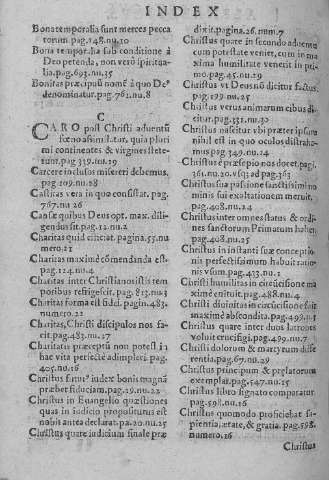 INDEX
Bona temporalia sunt merces pecca
torum.pag.148.nu.30
Bona temporalia sub conditione à
Deo petenda, non verò spiritua-
lia.pag.693.nu.35
Bonitas præcipuũ nomẽ à quo De9
denominatur.pag.762.nu.8
C
CARO post Christi aduentũ
fœno assimilatur, quia pluri
mi continentes & virgines stete-
runt.pag.339.nu.29
Carcere inclusos misereri debemus,
pag.109.nu.28
Castitas vera in quo consistat. pag.
767.nu.26
Causæ quibus Deus opt. max. dili-
gendus sit.pag.12.nu.2
Charitas quid efficiat.pagina.55.nu
mero.22
Charitas maximè cõmendanda est
pag.124.nu.4
Charitas inter Christianos istis tem
poribus refrigescit.pag.813.nu.3
Charitas forma est fidei. pagin.483.
numero.22
Charitas, Christi discipulos nos fa-
cit.pag.483.nu.27
Charitatis præceptũ non potest in
hac vita perfectè adimpleri. pag.
405.nu.16
Christus futur9 iudex bonis magnã
præbet fiduciam.pag.19.nu.22
Christus in Euangelio quæstiones
quas in iudicio propositurus est
nobis antea declarat.pa.20.nu.25
Christus quare iudicium finale præ
dixit.pagina.26.num.7
Christus quare in secundo aduentu
cum potestate veniet, cum in ma
xima humilitate venerit in pri-
mo.pag.45.nu.29
Christus vt Deus nũ dicitur factus.
pag.129.nu.25
Christus verus animarum cibus di-
citur.pag.131.nu.1
Christus nascitur vbi præter ipsum
nihil est in quo oculos distraha-
mus pag.349.nu.14
Christus è præsepio nos docet.pagi.
361.nu.20.vsq; ad pag.363
Christus sua passione sanctissimi no
minis sui exaltationem meruit,
pag.408.nu.24
Christus inter omnes status & ordi-
nes sanctorum Primatum habet,
pag.408.nu.31
Christus in instanti suæ conceptio-
nis perfectissimum habuit ratio-
nis vsum.pag.433.nu.2
Christi humilitas in circũcisione ma
ximè enituit.pag.488.nu.4
Christi diuinitas in circũcisione fuit
maximè abscondita.pag.499.nu.1
Christus quare inter duos latrones
voluit crucifigi.pag.499.nu.7
Christi dolorum & martyrum diffe
rentia.pag.67.nu.29
Christus principum & prælatorum
exemplar.pag.547.nu.15
Christus libro signato comparatur
pag.598.nu.16
Christus quomodo proficiebat sa-
pientia, ætate, & gratia.pag.598.
numero.16
Christus